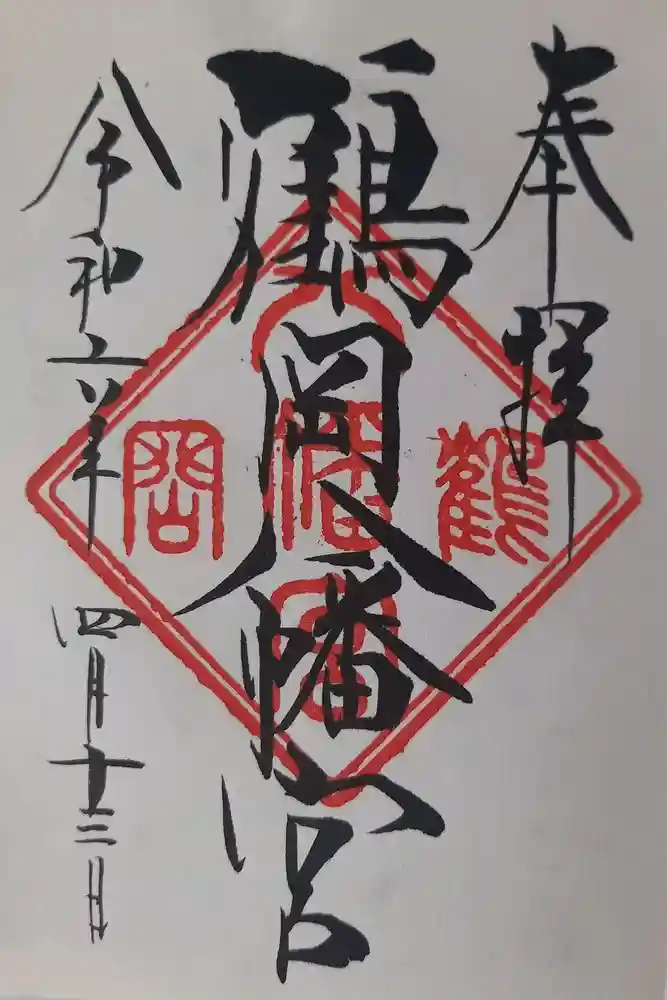 奉拝
鶴岡八幡宮
令和六年
四月十三日
鶴
八幡宮
岡